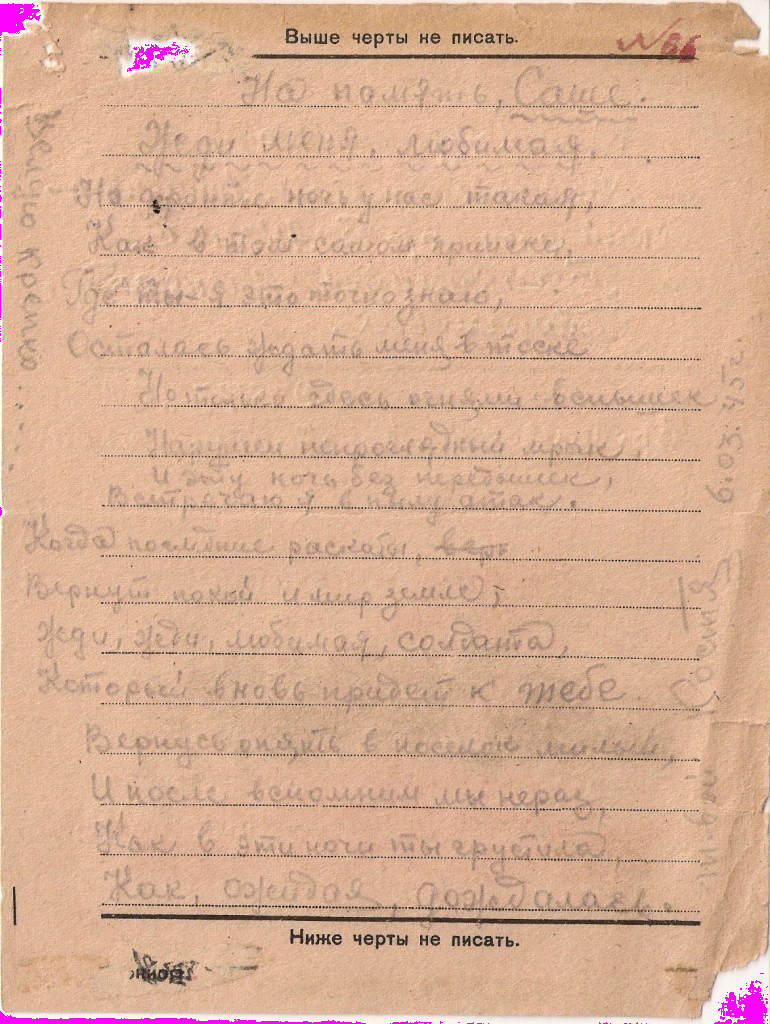 Выше черты не писать.
№ 66
На помять, Саше.
Жди меня, любимая,
На фронте ночь у нас такая,
Как в том самом прииске,
Где ты-я это точно знаю,
Осталась ждать меня в тоске
Но только здесь огнями вспышек
Нарушен непроглядный мрак,
И эту ночь без передышек,
Встречаю я в пылу атак.
Когда последние раскаты,
Вернут покой и мир земле,
Жди, жди, любимая, солдата,
Который вновь придет к тебе.
Вернусь опять в поселок милый,
И после вспомним мы нераз,
Как в эти ночи ты грустила,
Как, ожидая, дождалась.
Ниже черты не писать.
Целую крепко.....
Костя
6.03.45г.